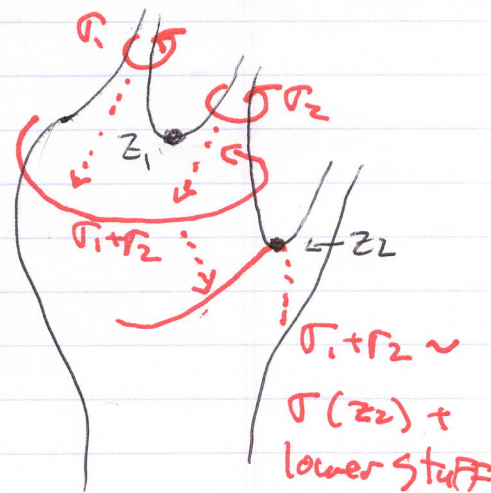 σ₁
σ₂
z₁
σ₁+σ₂
←z₂
σ₁+σ₂ ~
σ(z₂) +
lower stuff